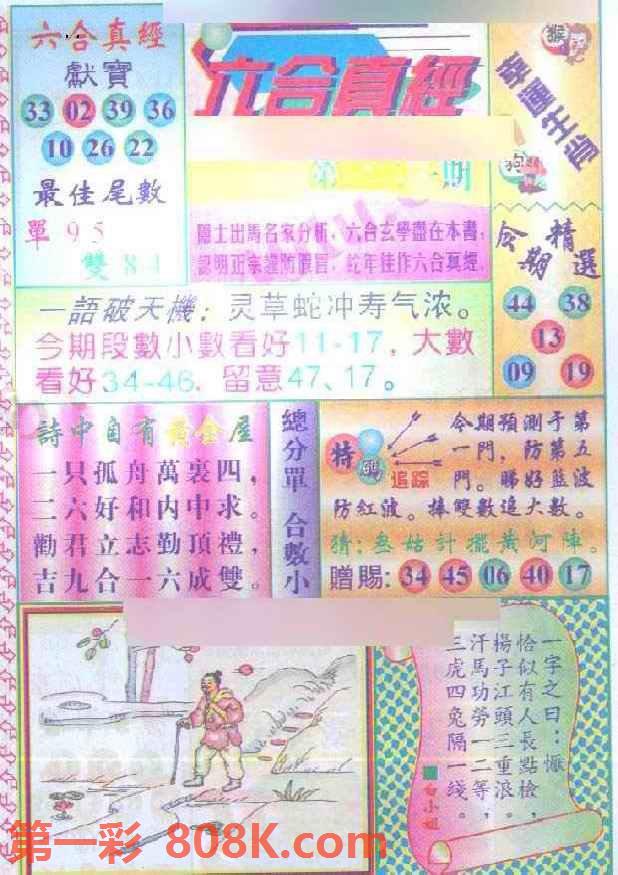 六合真經
獻寶
33 02 39 36
10 26 22
最佳尾數
單 9 5
雙 8 4
六合真經
第 期
隱士出馬名家分析，六合玄學盡在本書，
認明正宗謹防假冒，蛇年佳作六合真經。
幸運生肖
猴
狗
今期精選
44 38
13
09 19
一語破天機：灵草蛇冲寿气浓。
今期段數小數看好11-17，大數
看好34-46，留意47、17。
詩中自有黃金屋
一只孤舟萬裏四，
二六好和内中求。
勸君立志勤頂禮，
吉九合一六成雙。
總分單 合數小
特碼追踪
今期預測于第
一門，防第五
門。睇好藍波
防紅波。捧雙數追大數。
猜：叁姑計擺黃河陣。
贈賜：34 45 06 40 17
一字之曰：慨
恰似有人長點檢，
揚子江頭三重浪。
汗馬功勞一二等，
三虎四兔隔一綫。
白小姐
第一彩 808K.com